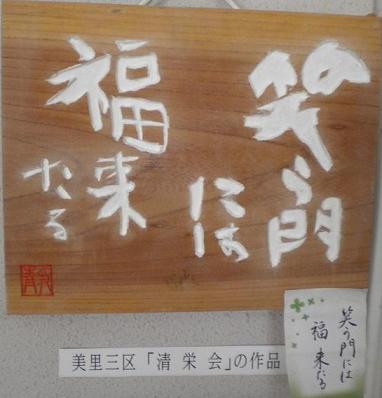 笑う門
には
福来
たる
美里三区 「清 栄 会」の作品
笑う門には
福来たる